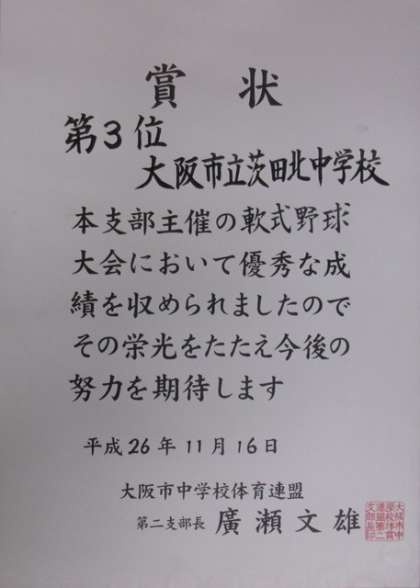 賞状
第3位
大阪市立茨田北中学校
本支部主催の軟式野球
大会において優秀な成
績を収められましたので
その栄光をたたえ今後の
努力を期待します
平成26年11月16日
大阪市中学校体育連盟
第二支部長 廣瀬文雄